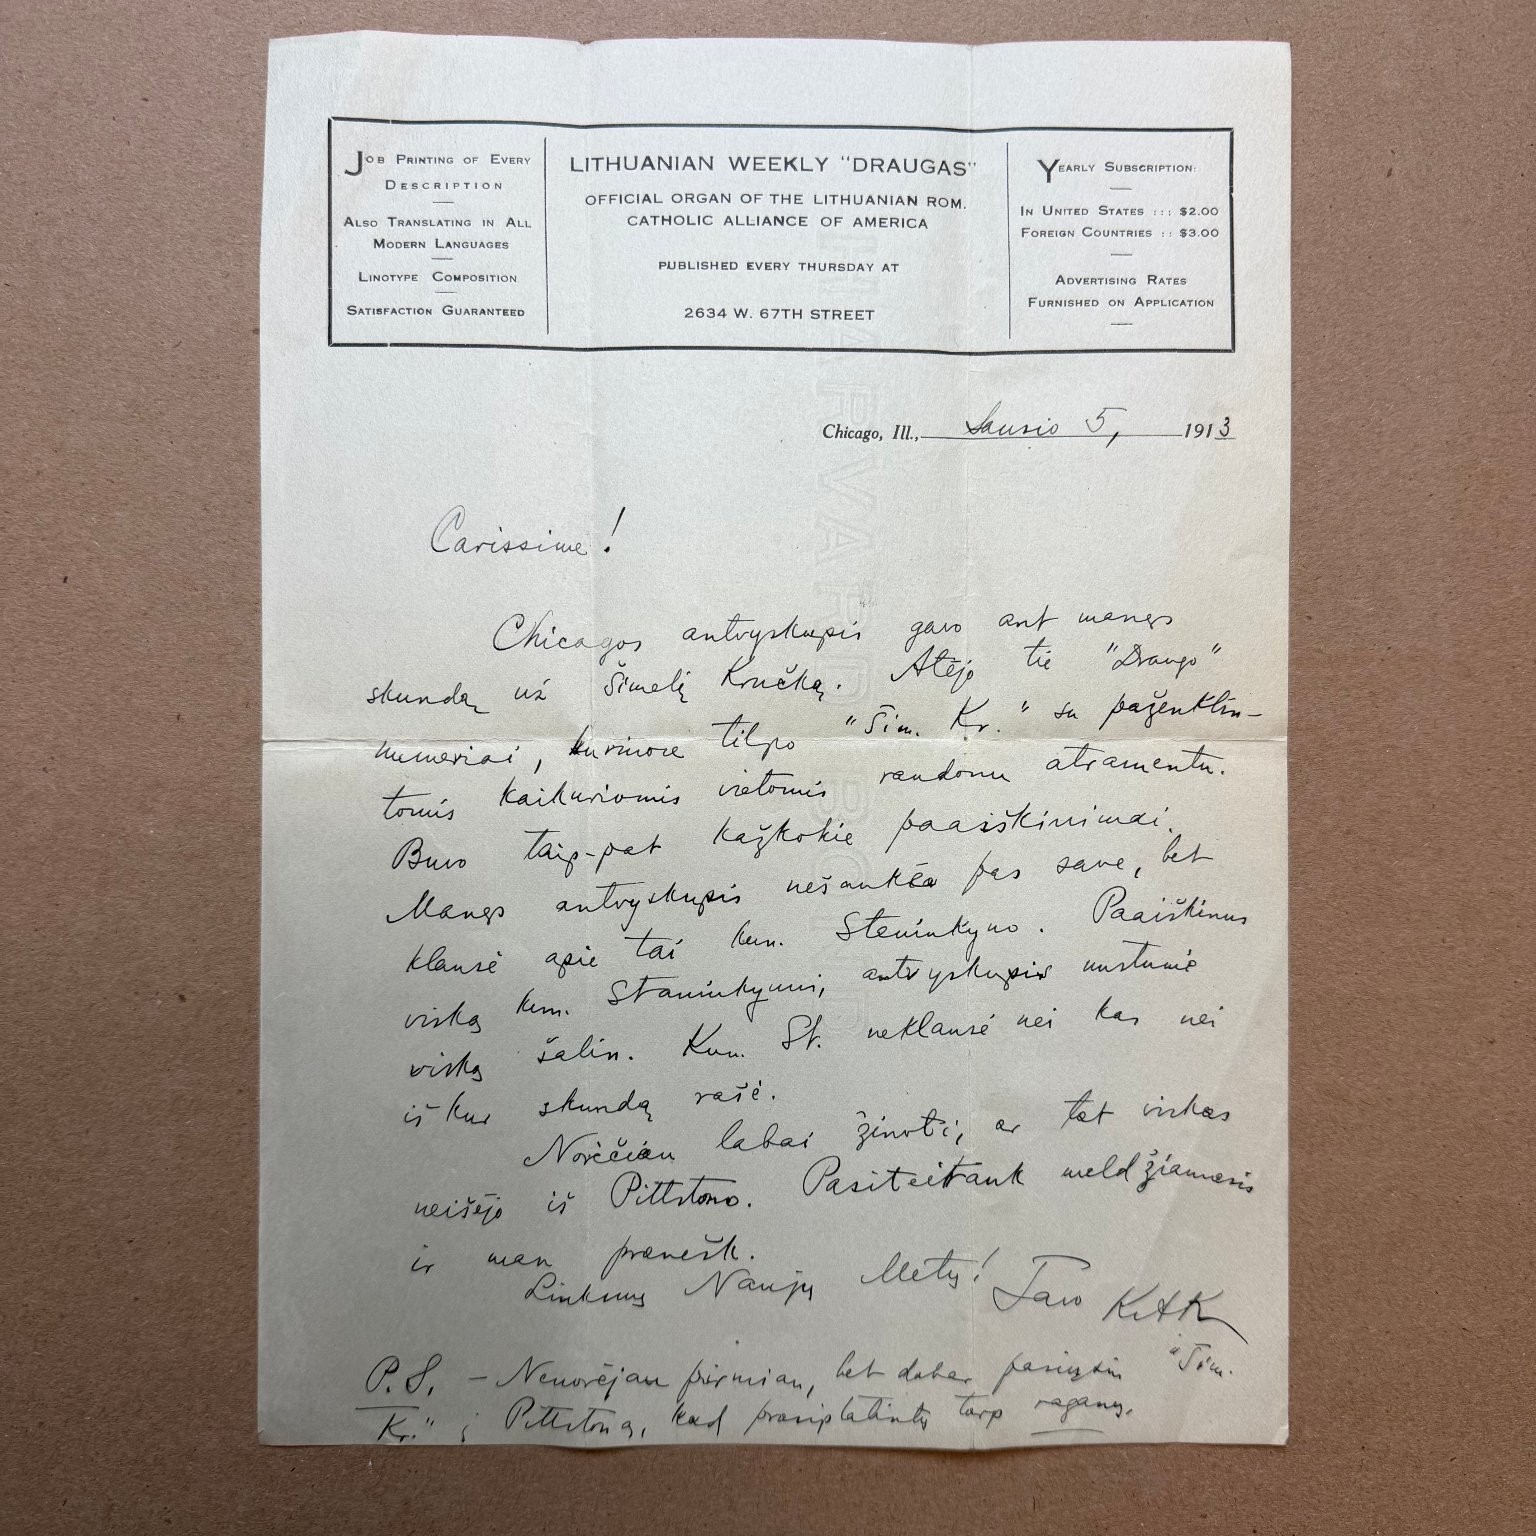 JOB PRINTING OF EVERY
DESCRIPTION
ALSO TRANSLATING IN ALL
MODERN LANGUAGES
LINOTYPE COMPOSITION
SATISFACTION GUARANTEED
LITHUANIAN WEEKLY "DRAUGAS"
OFFICIAL ORGAN OF THE LITHUANIAN ROM.
CATHOLIC ALLIANCE OF AMERICA
PUBLISHED EVERY THURSDAY AT
2634 W. 67TH STREET
YEARLY SUBSCRIPTION:
IN UNITED STATES ::: $2.00
FOREIGN COUNTRIES :: $3.00
ADVERTISING RATES
FURNISHED ON APPLICATION
Chicago, Ill., Sausio 5, 1913
Carissime!
Chicagos antvyskupis gavo ant manęs
skundą už Šimelį Kručką. Atėjo tie "Draugo"
numeriai, kuriuose tilpo "Šim. Kr." su paženklin-
tomis kaikuriomis vietomis raudonu atramentu.
Buvo taip-pat kažkokie paaiškinimai.
Manęs antvyskupis nešaukė pas save, bet
klausė apie tai kun. Steniukyno. Paaiškinus
viską kun. Staniukynui, antvyskupis nustumė
viską šalin. Kun. St. neklausė nei kas nei
iš kur skundą rašė.
Norėčiau labai žinoti, ar tat viskas
neišėjo iš Pittstono. Pasiteirauk meldžiamasis
ir man pranešk.
Linksmų Naujų Metų! Tavo KAK
P.S. – Nenorėjau pirmiau, bet dabar pasiųsiu "Šim.
Kr." į Pittstoną, kad prasiplatintų tarp raganų.
HARVARD BOND